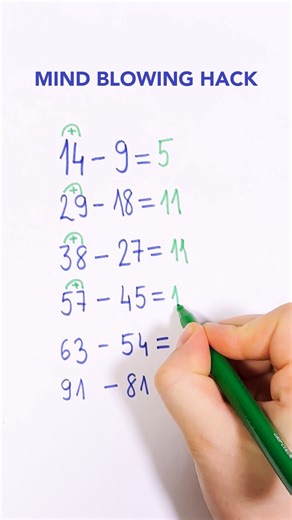 MIND BLOWING HACK
+
14 - 9 = 5
+
29 - 18 = 11
+
38 - 27 = 11
+
57 - 45 = 1
63 - 54 =
91 - 81